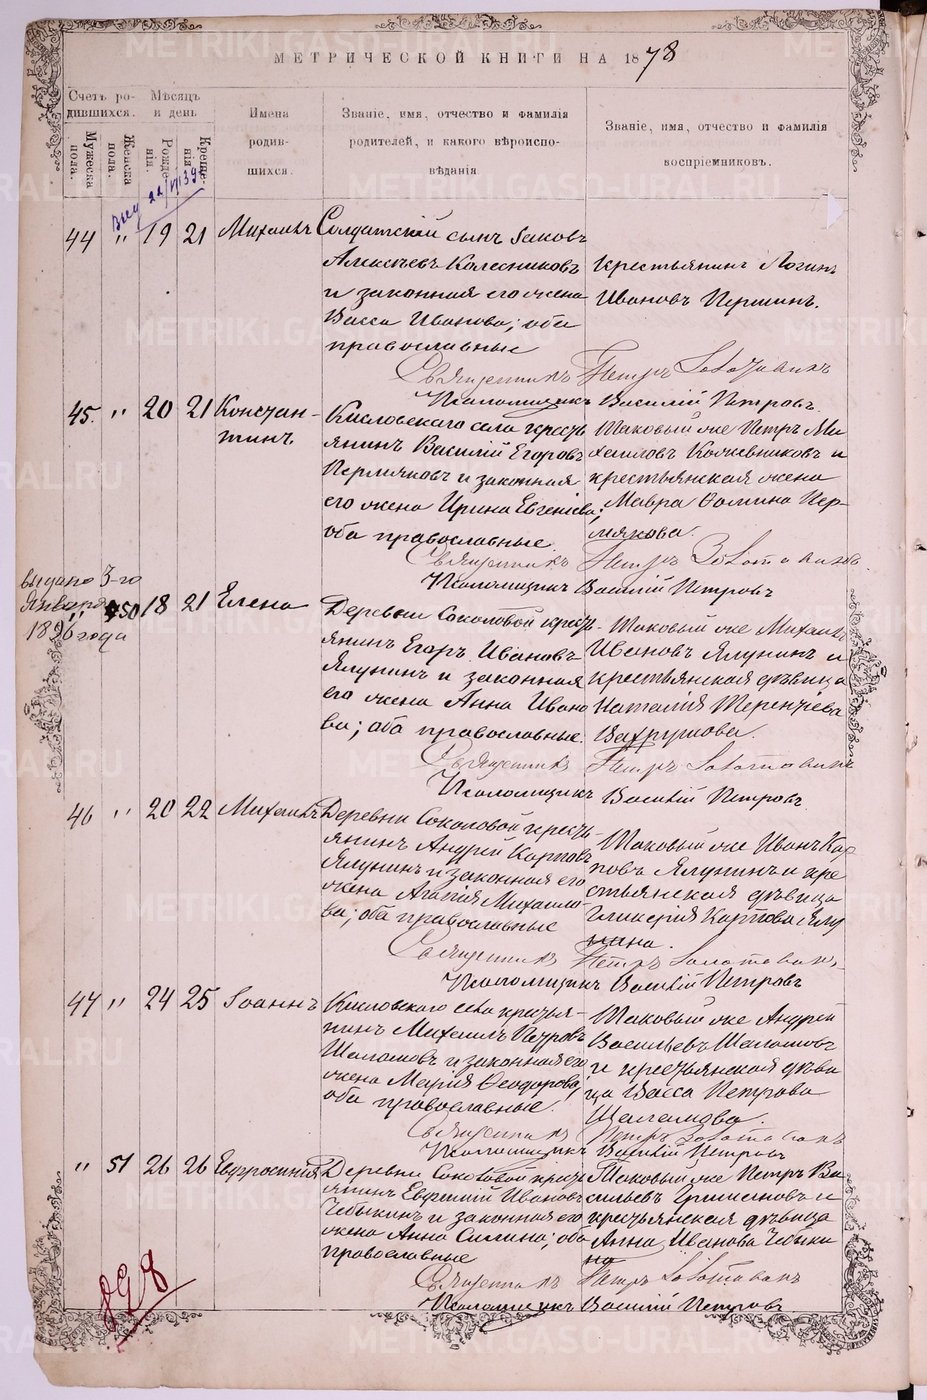 МЕТРИЧЕСКОЙ КНИГИ НА 1878
Счетъ родившихся.
Мужеска пола.
Женска пола.
Мѣсяцъ и день
Рожденія.
Крещенія.
Имена родившихся.
Званіе, имя, отчество и фамилія родителей, и какого вѣроисповѣданія
Званіе, имя, отчество и фамилія воспріемниковъ.
44 " 19 21 Михаилъ
Солдатскій сынъ Іаковъ
Алексѣевъ Колесниковъ
и законная его жена
Васса Иванова; оба
православные
Крестьянинъ Логинъ
Ивановъ Першинъ.
Священникъ Петръ
Псаломщикъ Василій Петровъ.
45. " 20 21 Констан-
тинъ
Кисловскаго села кресть
янинъ Василій Егоровъ
Пермяковъ и законная
его жена Ирина Евгеніева;
оба православные
Таковый же Петръ Ми
хаиловъ Кожевниковъ и
крестьянская жена
Мавра Фомина Пер-
мякова.
Священникъ Петръ
Псаломщикъ Василій Петровъ
выдано 3-го
Января
1896 года
" 50 18 21 Елена
Деревни Соколовой кресть
янинъ Егоръ Ивановъ
Ялунинъ и законная
его жена Анна Ивано
ва; оба православные.
Таковый же Михаилъ
Ивановъ Ялунинъ и
крестьянская дѣвица
Наталія Терентіева
Вахрушова.
Священникъ Петръ
Псаломщикъ Василій Петровъ
46 " 20 22 Михаилъ
Деревни Соколовой кресть-
янинъ Андрей Карповъ
Ялунинъ и законная его
жена Агапія Михаило-
ва; оба православные
Таковый же Иванъ Кар
повъ Ялунинъ и кре
стьянская дѣвица
Гликерія Карпова Ялу
нина.
Священникъ Петръ
Псаломщикъ Василій Петровъ
47 " 24 25 Іоаннъ
Кисловскаго села крестья-
нинъ Михаилъ Петровъ
Шаламовъ и законная его
жена Марія Ѳеодорова;
оба православные.
Таковый же Андрей
Васильевъ Шаламовъ
и крестьянская дѣви
ца Васса Петрова
Шаламова.
Священникъ Петръ
Псаломщикъ Василій Петровъ
" 51 26 26 Евфросинія
Деревни Соколовой кресть
янинъ Евфимій Ивановъ
Чебыкинъ и законная его
жена Анна Силина; оба
православные
Таковый же Петръ Ва
сильевъ и
крестьянская дѣвица
Анна Иванова Чебыки
на
Священникъ Петръ
Псаломщикъ Василій Петровъ
898
METRIKI.GASO-URAL.RU